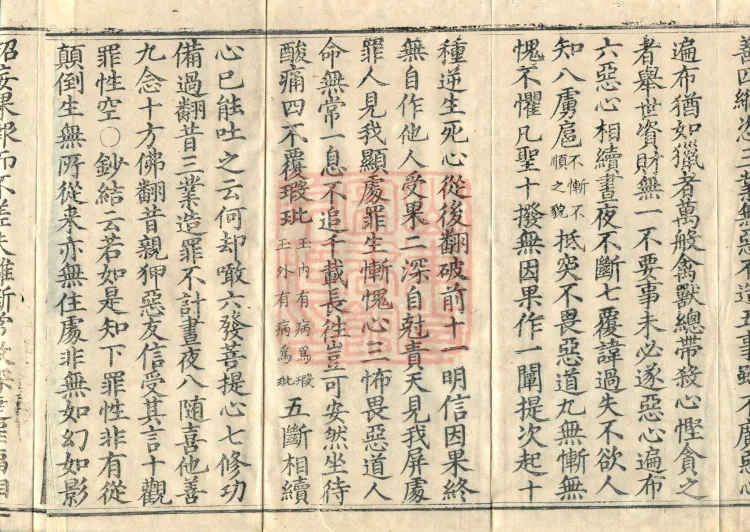 善四縱恣三業無惡不造五事雖不廣惡心
遍布猶如獵者萬般禽獸總帶殺心慳貪之
者舉世資財無一不要事未必遂惡心遍布
六惡心相續晝夜不斷七覆諱過失不欲人
知八虜扈不慚不順之貌抵突不畏惡道九無慚無
愧不懼凡聖十撥無因果作一闡提次起十
種逆生死心從後翻破前十一明信因果終
無自作他人受果二深自尅責天見我屏處
罪人見我顯處罪生慚愧心三怖畏惡道人
命無常一息不追千載長往豈可安然坐待
酸痛四不覆瑕玼玉內有病爲瑕玉外有病爲玼五斷相續
心已能吐之云何却噉六發菩提心七修功
備過翻昔三業造罪不計晝夜八隨喜他善
九念十方佛翻昔親狎惡友信受其言十觀
罪性空○鈔結云若如是知下罪性非有從
顛倒生無所從来亦無住處非無如幻如影
招妄果報而不差失雖斯常寂深達罪福相